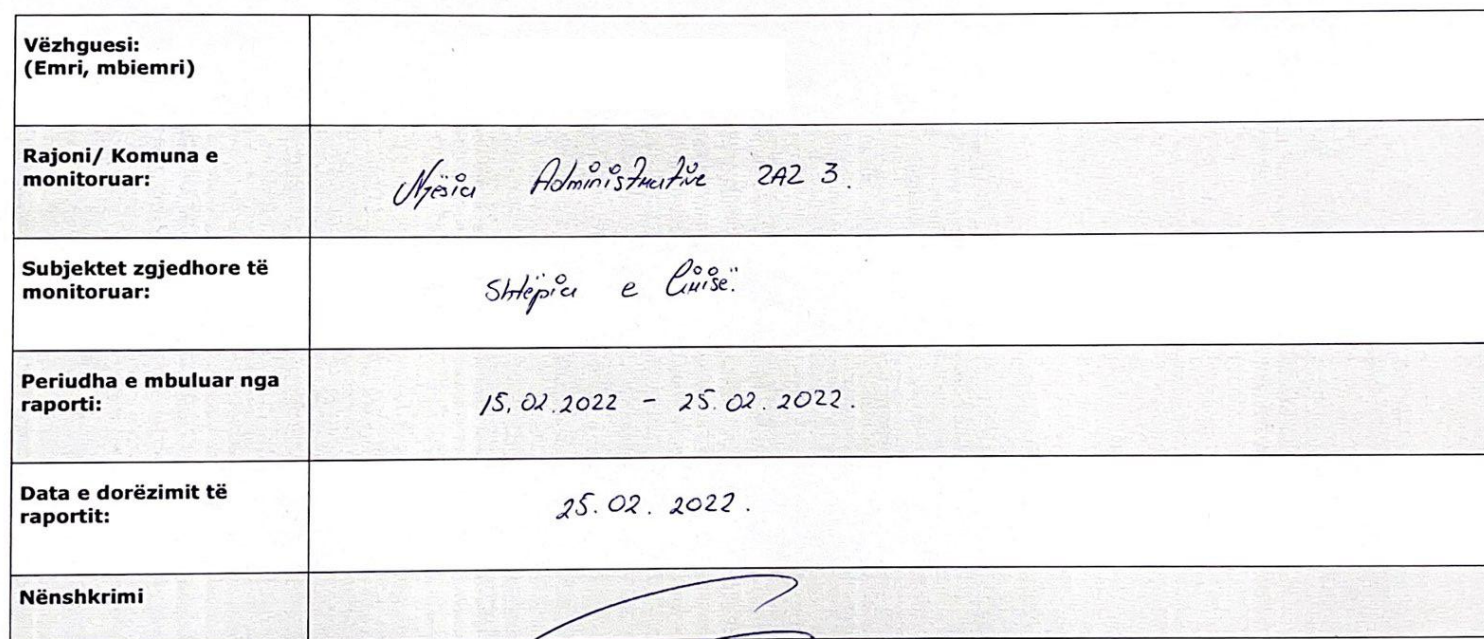 Vëzhguesi:
(Emri, mbiemri)
Rajoni/ Komuna e
monitoruar:
Njësia Administrative ZAZ 3.
Subjektet zgjedhore të
monitoruar:
Shtëpia e Lirisë.
Periudha e mbuluar nga
raporti:
15.02.2022 - 25.02.2022.
Data e dorëzimit të
raportit:
25.02.2022.
Nënshkrimi